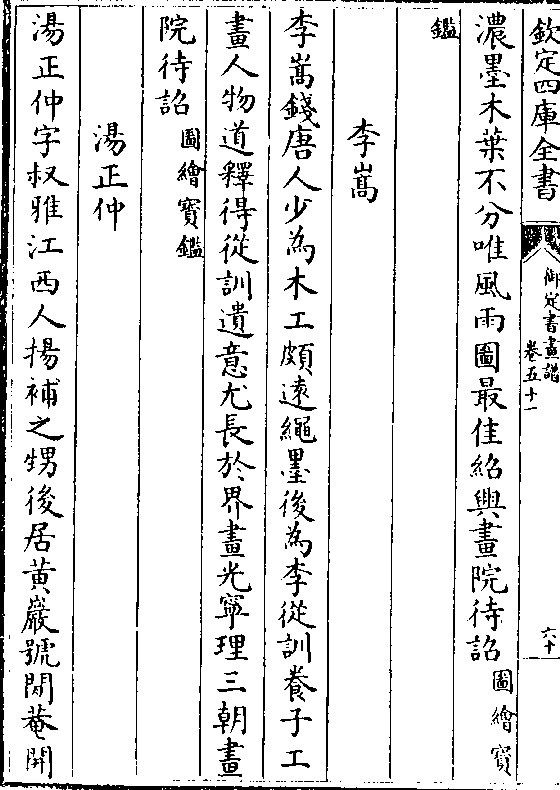 欽定四庫全書
御定書畫譜
卷五十一
六十
濃墨木葉不分唯風雨圖最佳紹興畫院待詔圖繪寶
鑑
李嵩
李嵩錢唐人少為木工頗逺繩墨後為李從訓養子工
畫人物道釋得從訓遺意尤長於界畫光寧理三朝畫
院待詔圖繪寶鑑
湯正仲
湯正仲字叔雅江西人揚補之甥後居黄巖號閒菴開